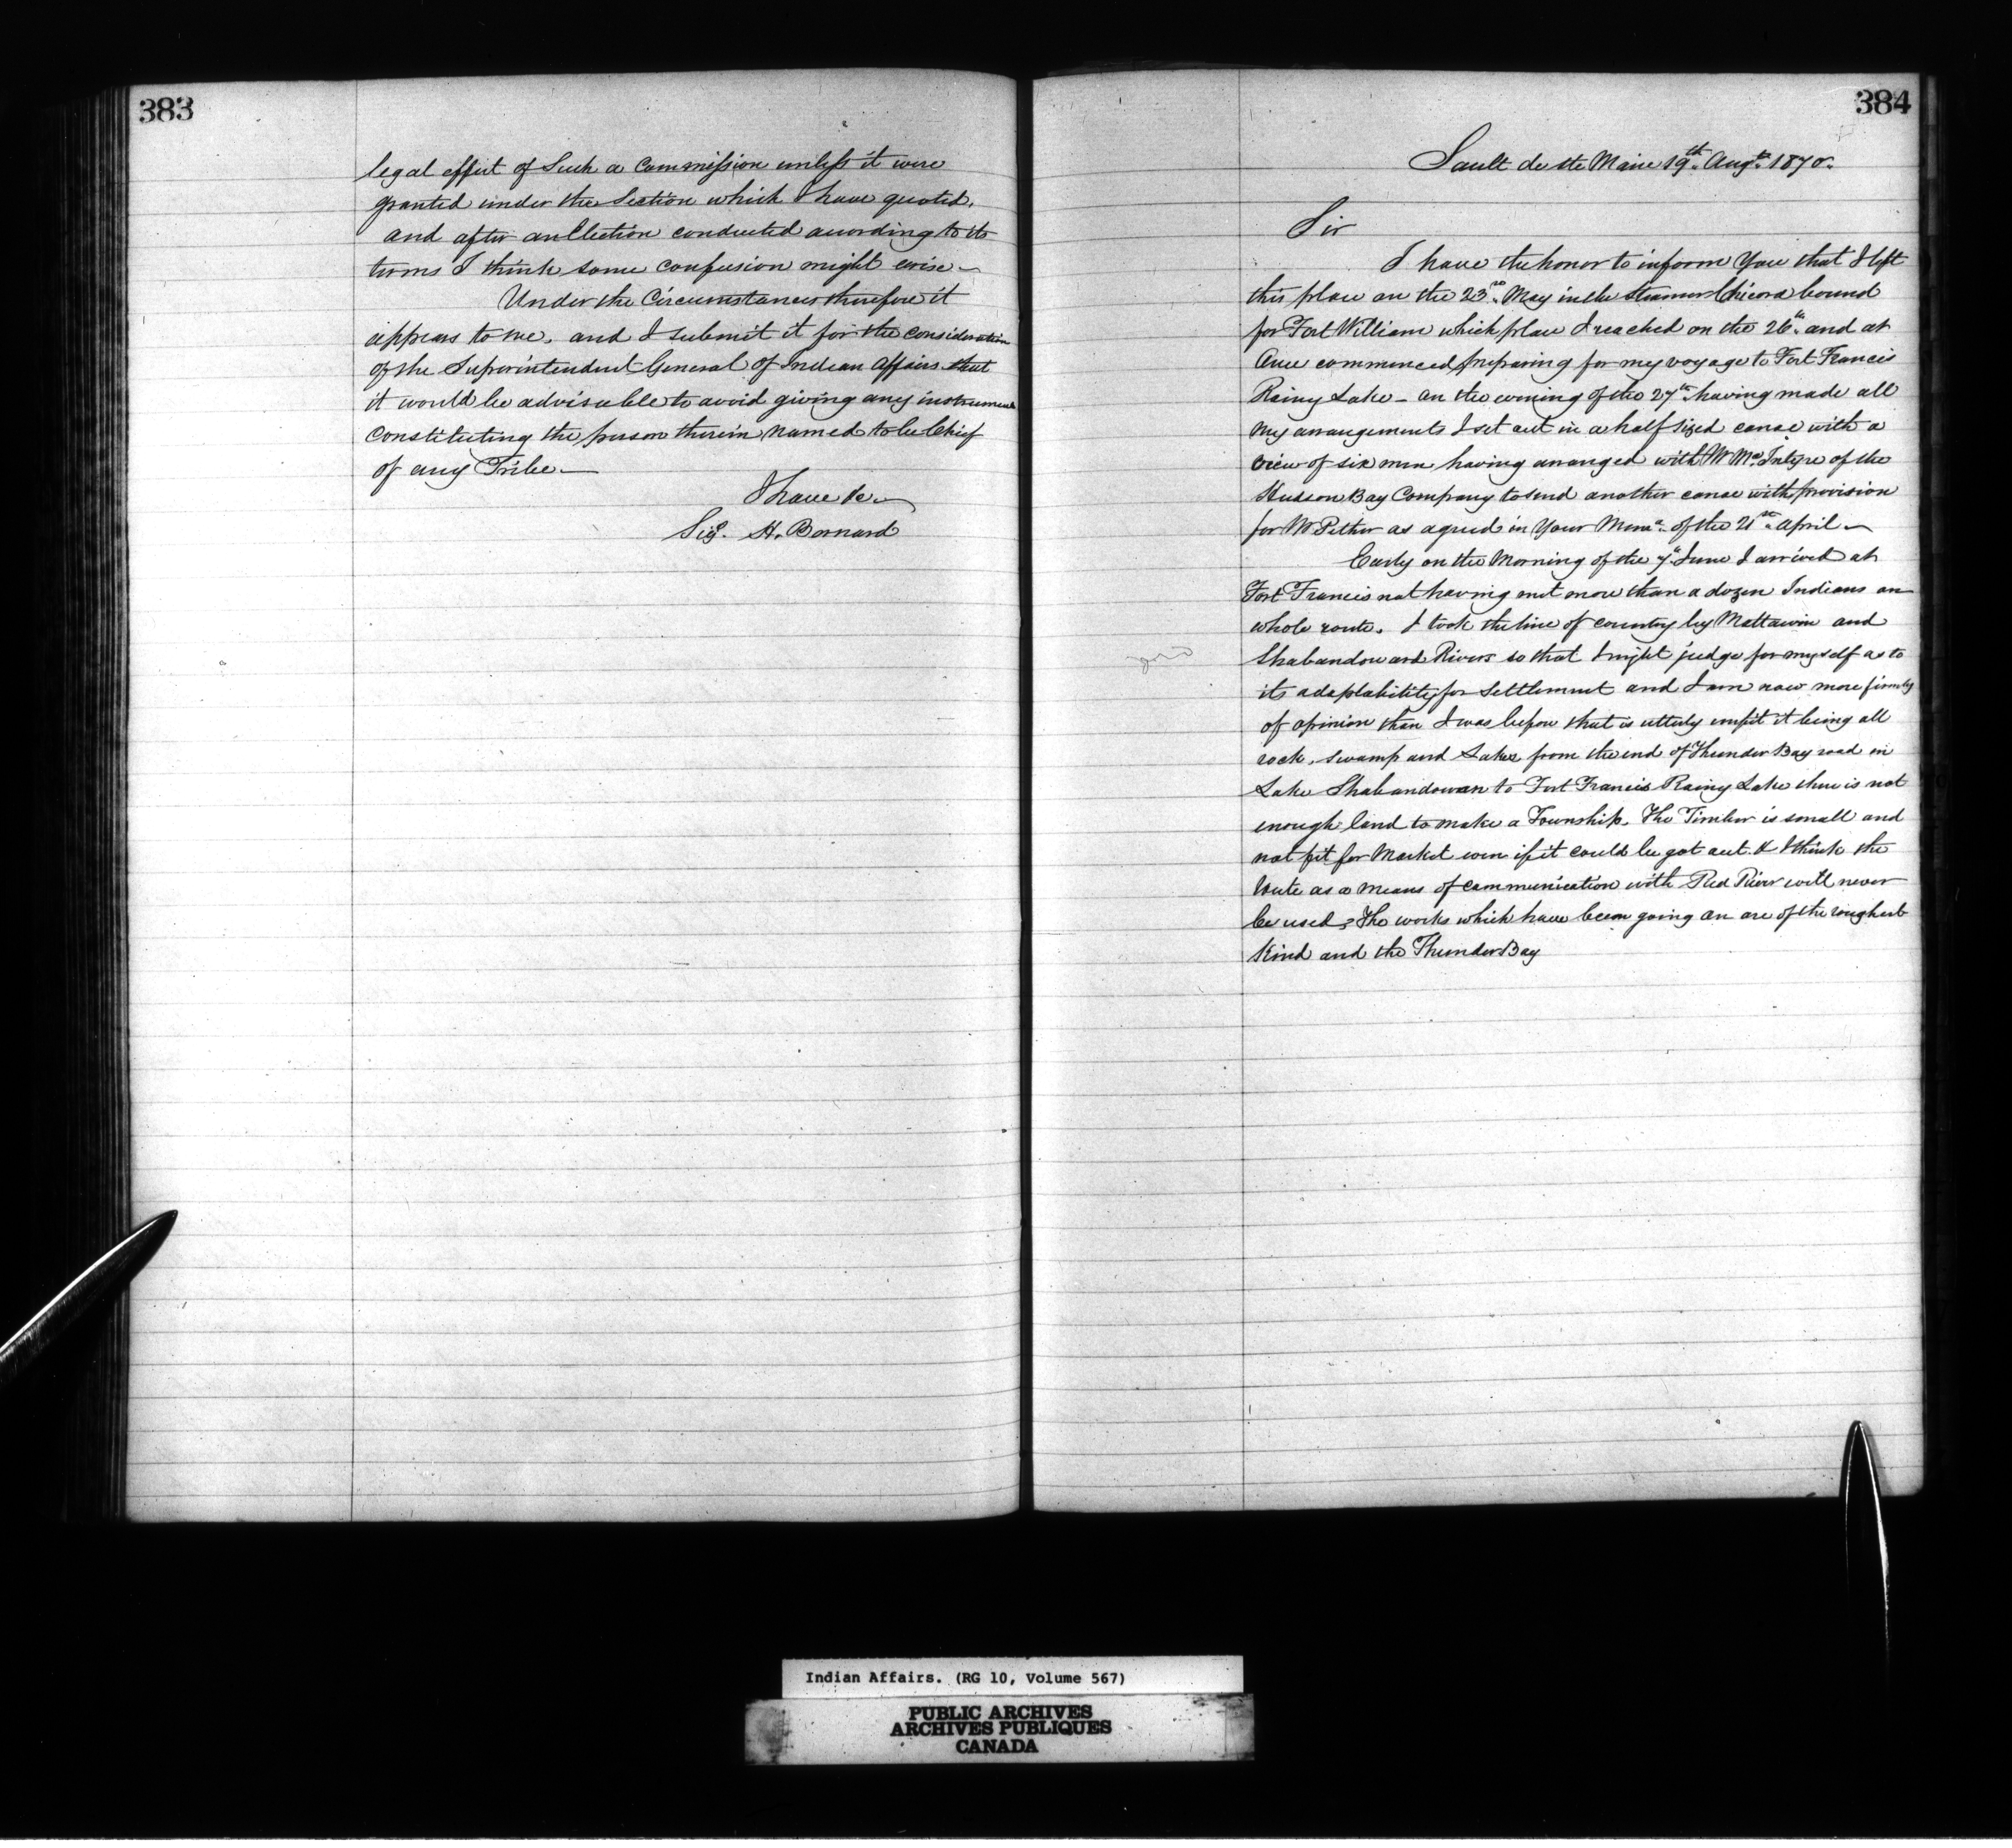 383
legal effect of Such a Commission unless it were
granted under the Section which I have quoted,
and after an Election conducted according to its
terms I think some confusion might arise—
Under the Circumstances therefore it
appears to me, and I submit it for the consideration
of the Superintendent General of Indian Affairs that
it would be advisable to avoid giving any instrument
Constituting the person therein named to be Chief
of any Tribe—
I have &c—
Sigd. H. Bernard
384
Sault de Ste Marie 19th Augt. 1870.
Sir
I have the honor to inform You that I left
this place on the 23rd May in the Steamer Chicora bound
for Fort William which place I reached on the 26th and at
Once commenced preparing for my voyage to Fort Francis
Rainy Lake — on the evening of the 27th having made all
My arrangements I set out in a half sized canoe with a
crew of six men having arranged with Mr McIntyre of the
Hudson Bay Company to send another canoe with provision
for Mr Pether as agreed in Your Memo. of the 21st April—
Early on the Morning of the 7th June I arrived at
Fort Francis not having met more than a dozen Indians on
whole route. I took the line of country by Mattawin and
Shabandowan Rivers so that I might judge for myself as to
its adaptability for Settlement and I am now more firmly
of opinion than I was before that is utterly unfit it being all
rock, swamp and Lakes from the end of Thunder Bay road in
Lake Shabandowan to Fort Francis Rainy Lake there is not
enough land to make a Township. The Timber is small and
not fit for Market even if it could be got out. & I think the
Route as a means of communication with Red River will never
be used, The works which have been going on are of the roughest
Kind and the Thunder Bay
Indian Affairs. (RG 10, Volume 567)
PUBLIC ARCHIVES
ARCHIVES PUBLIQUES
CANADA